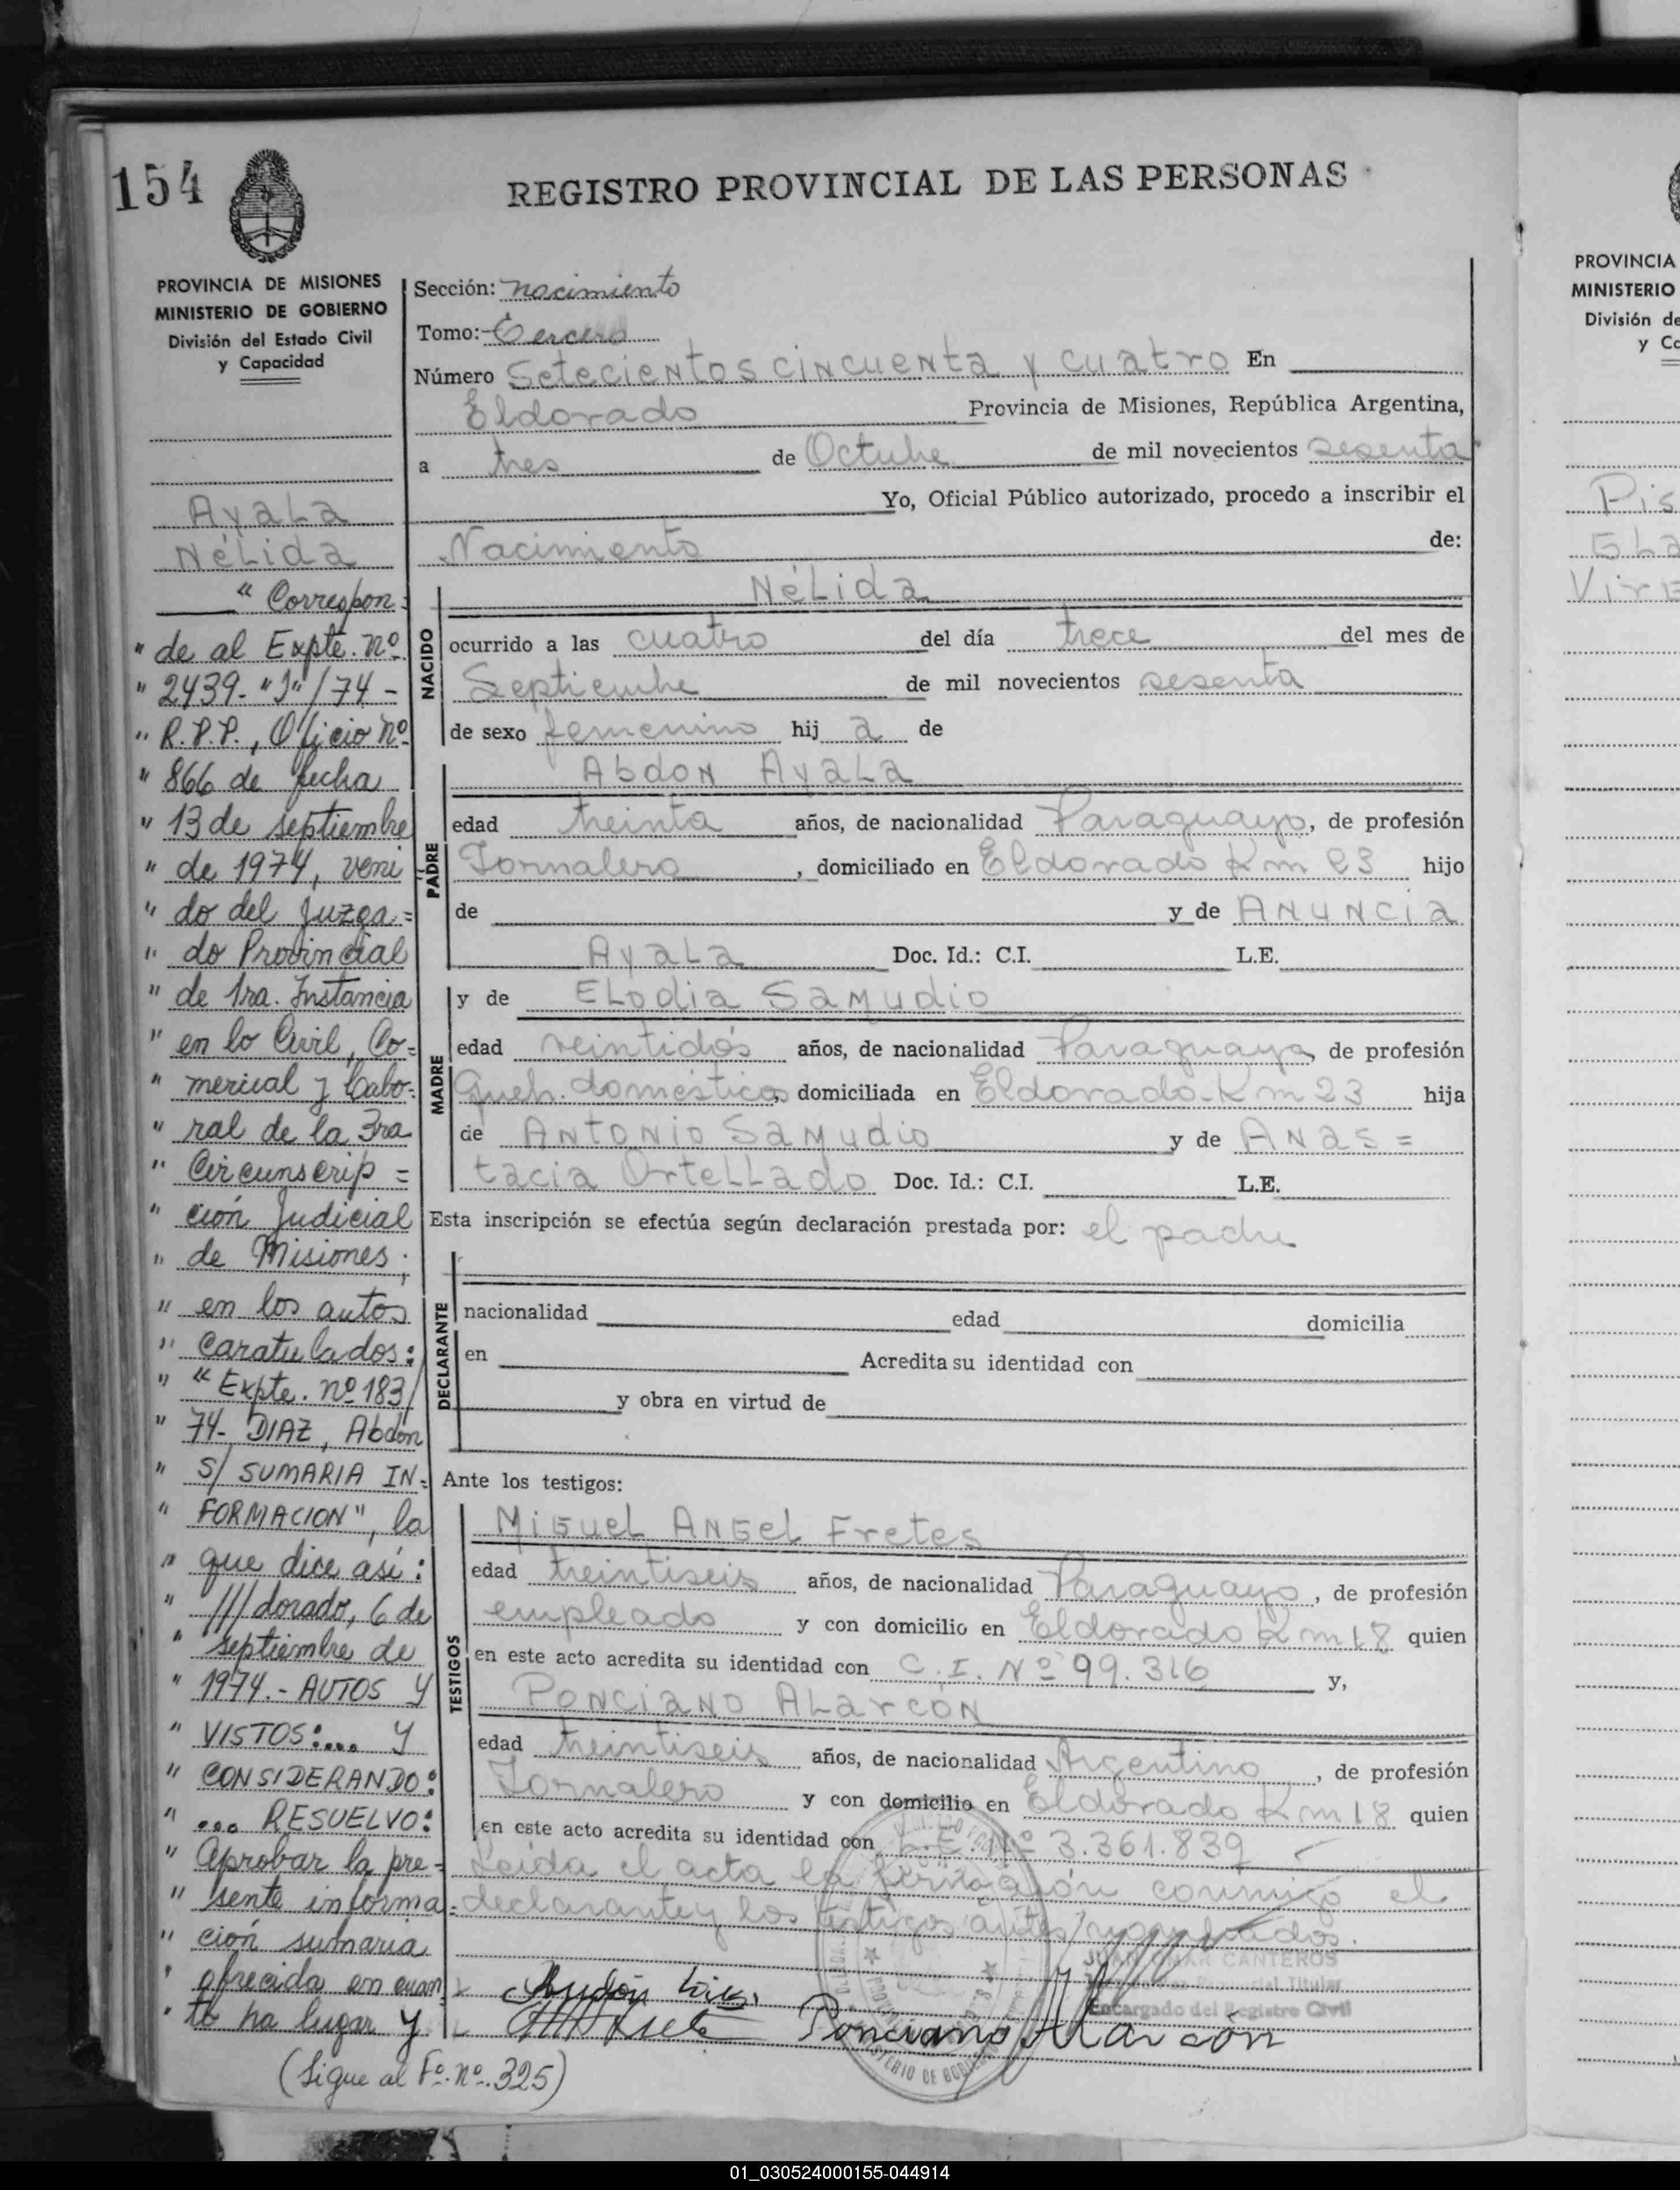 154
REGISTRO PROVINCIAL DE LAS PERSONAS
PROVINCIA DE MISIONES
MINISTERIO DE GOBIERNO
División del Estado Civil
y Capacidad
Ayala
Nélida
" Correspon=
" de al Expte. Nº
" 2439-"J"/74-
" R.P.P., Oficio Nº
" 866 de fecha
" 13 de septiembre
" de 1974, veni
" do del Juzga=
" do Provincial
" de 1ra. Instancia
" en lo Civil, Co=
" merical y Labo=
" ral de la 3ra
" Circunscrip=
" ción Judicial
" de Misiones;
" en los autos
" Caratulados:
" "Expte. nº 183/
" 74- DIAZ, Abdón
" S/ SUMARIA IN=
" FORMACION", la
" que dice así:
" ///dorado, 6 de
" septiembre de
" 1974.- AUTOS Y
" VISTOS:.... Y
" CONSIDERANDO:
" ... RESUELVO:
" Aprobar la pre=
" sente informa=
" ción sumaria
" ofrecida en cuan
" to ha lugar y
(Sigue al Fº. Nº. 325)
Sección: Nacimiento
Tomo: Tercero
Número Setecientos cincuenta y cuatro En
Eldorado Provincia de Misiones, República Argentina,
a tres de Octubre de mil novecientos sesenta
Yo, Oficial Público autorizado, procedo a inscribir el
Nacimiento de:
NACIDO
Nélida
ocurrido a las cuatro del día trece del mes de
Septiembre de mil novecientos sesenta
de sexo femenino hij a de
PADRE
Abdon Ayala
edad treinta años, de nacionalidad Paraguayo, de profesión
Jornalero, domiciliado en Eldorado Km 23 hijo
de y de Anuncia
Ayala Doc. Id.: C.I. L.E.
MADRE
y de Elodia Samudio
edad veintidós años, de nacionalidad Paraguaya, de profesión
Queh. domésticos, domiciliada en Eldorado-Km 23 hija
de Antonio Samudio y de Anas=
tacia Ortellado Doc. Id.: C.I. L.E.
Esta inscripción se efectúa según declaración prestada por: el padre
DECLARANTE
nacionalidad edad domicilia
en Acredita su identidad con
y obra en virtud de
Ante los testigos:
TESTIGOS
Miguel Angel Fretes
edad treintiseis años, de nacionalidad Paraguayo, de profesión
empleado y con domicilio en Eldorado Km 18 quien
en este acto acredita su identidad con C.I. Nº 99.316 y,
Ponciano Alarcón
edad treintiseis años, de nacionalidad Argentino, de profesión
Jornalero y con domicilio en Eldorado Km 18 quien
en este acto acredita su identidad con L.E. Nº 3.361.839
Leida el acta la firman con conmigo el
declarante y los testigos antes nombrados.
CANTEROS
Titular
Encargado del Registro Civil
Ponciano Alarcón
PROVINCIA
MINISTERIO
División de
y Ca
Pis
Vir
01_030524000155-044914